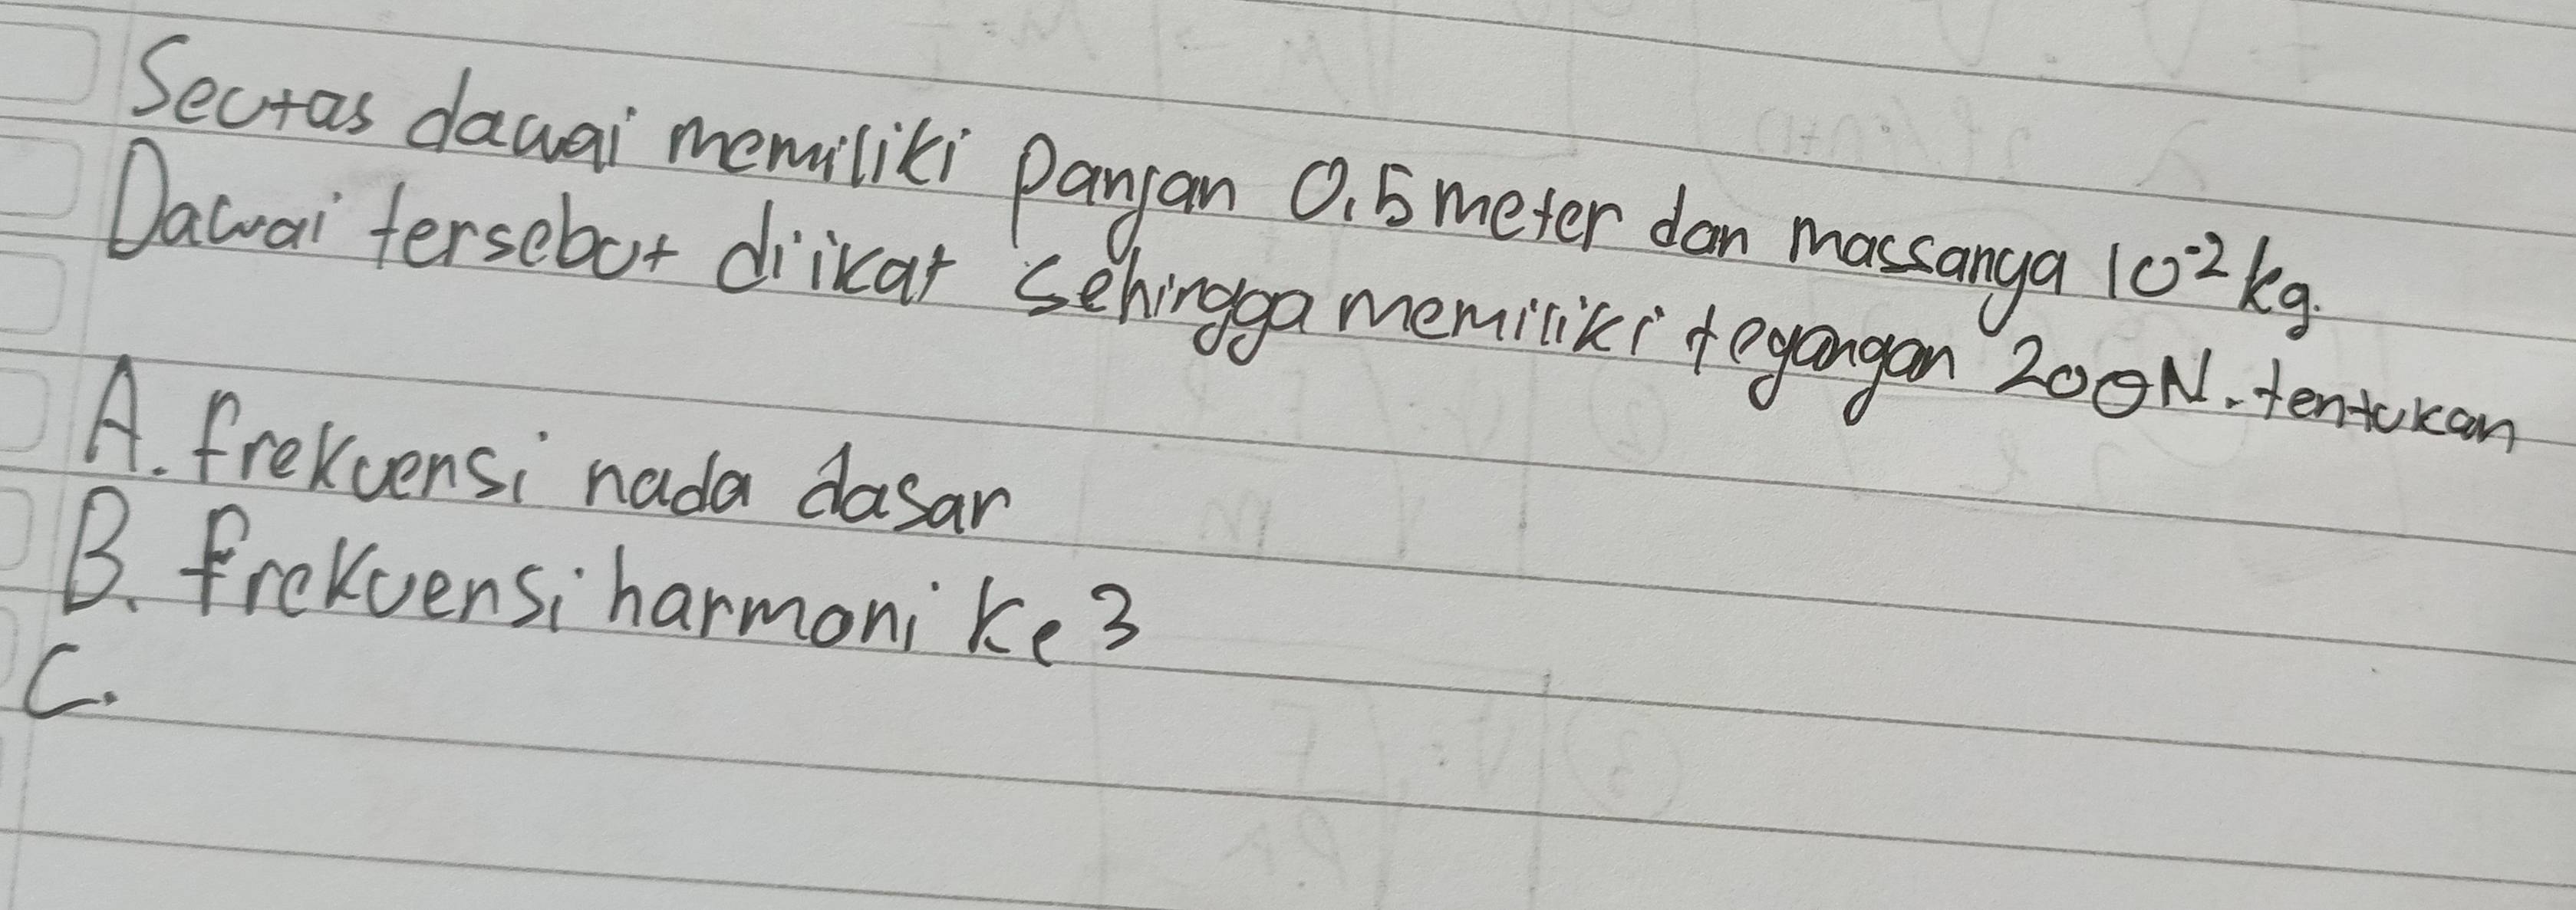 Seutas dawai memiliki Panjan 0,5 meter dan massanya 10⁻² kg.
Dawai tersebut diikat sehingga memiliki tegangan 200 N. tentukan
A. frekuensi nada dasar
B. frekuensi harmoni ke 3
C.